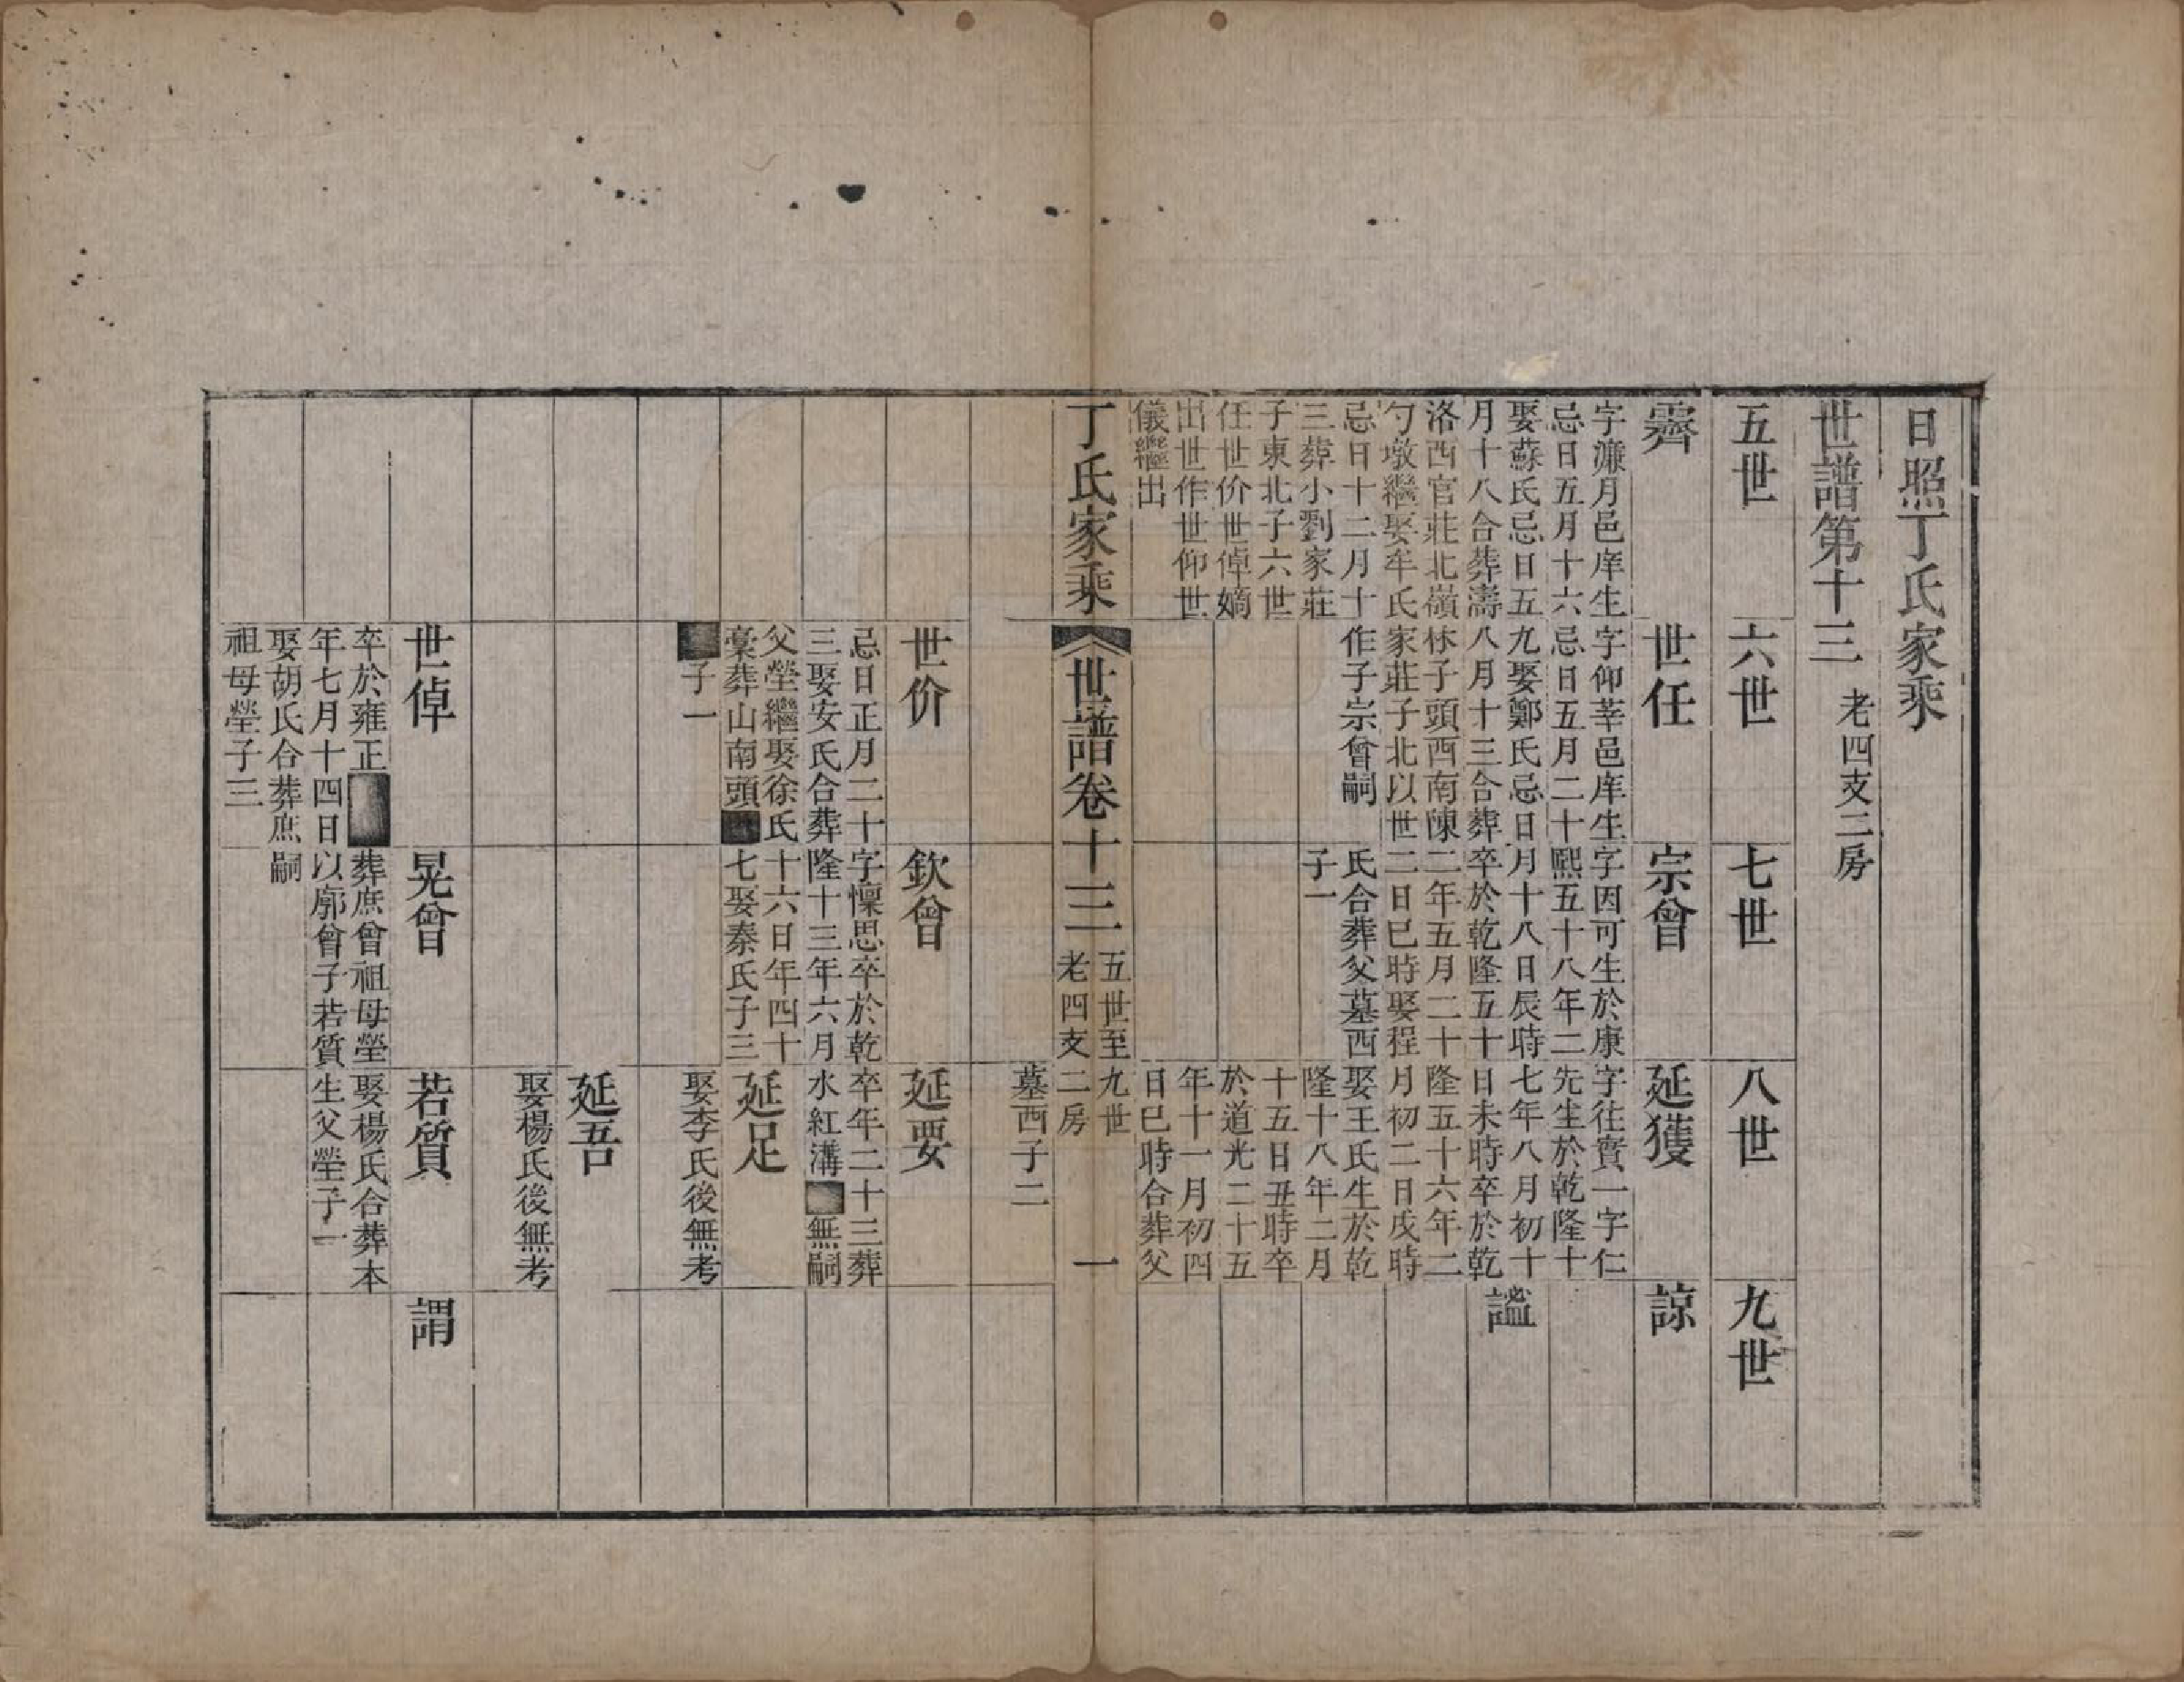 日照丁氏家乘
世譜第十三 老四支二房
五世
六世
七世
八世
九世
霽
字濂月邑庠生
忌日五月十六
娶蘇氏忌日五
月十八合葬濤
洛西官莊北嶺
勺墩繼娶牟氏
忌日十二月十
三葬小劉家莊
子東北子六世
任世价世倬嫡
出世作世仰世
儀繼出
世任
字仰莘邑庠生
忌日五月二十
九娶鄭氏忌日
八月十三合葬
林子頭西南陳
家莊子北以世
作子宗曾嗣
宗曾
字因可生於康
熙五十八年二
月十八日辰時
卒於乾隆五十
二年五月二十
二日巳時娶程
氏合葬父墓西
子一
延獲
字往實一字仁
先生於乾隆十
七年八月初十
日未時卒於乾
隆五十六年二
月初二日戌時
娶王氏生於乾
隆十八年二月
十五日丑時卒
於道光二十五
年十一月初四
日巳時合葬父
墓西子二
諒
謐
丁氏家乘
世譜卷十三
五世至九世
老四支二房
一
世价
忌日正月二十
三娶安氏合葬
父塋繼娶徐氏
稾葬山南頭
子一
欽曾
字懍思卒於乾
隆十三年六月
十六日年四十
七娶秦氏子三
延要
卒年二十三葬
水紅溝 無嗣
延足
娶李氏後無考
延吾
娶楊氏後無考
世倬
卒於雍正
年七月十四日
娶胡氏合葬庶
祖母塋子三
晃曾
葬庶曾祖母塋
以廓曾子若質
嗣
若質
娶楊氏合葬本
生父塋子一
謂